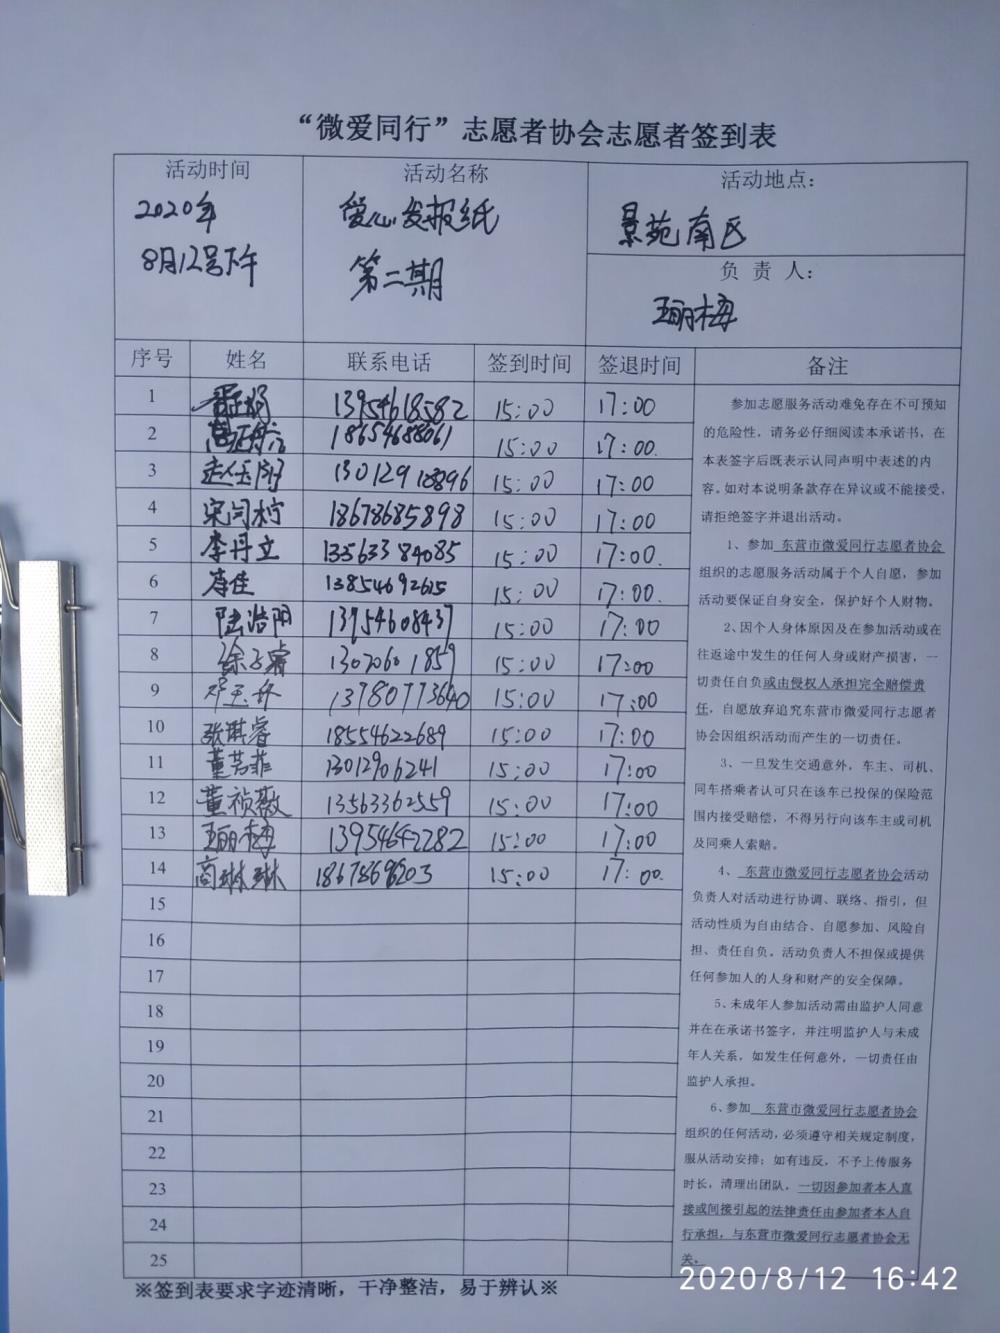 “微爱同行”志愿者协会志愿者签到表
活动时间
2020年
8月12号下午
活动名称
爱心发报纸
第二期
活动地点：
景苑南区
负 责 人：
王丽梅
序号 姓名 联系电话 签到时间 签退时间 备注
1 13954618582 15:00 17:00
2 18654688061 15:00 17:00.
3 15:00 17:00
4 18678685898 15:00 17:00
5 李丹立 13563384085 15:00 17:00.
6 李佳 13854692615 15:00 17:00.
7 陆浩阳 13954608437 15:00 17:00
8 徐子睿 13020601859 15:00 17:00
9 邓玉环 13780773640 15:00 17:00
10 张淇睿 18554622689 15:00 17:00
11 董芳菲 13012906241 15:00 17:00
12 董祯薇 13563362559 15:00 17:00
13 王丽梅 13954642282 15:00 17:00
14 商琳琳 15:00 17:00.
15
16
17
18
19
20
21
22
23
24
25
参加志愿服务活动难免存在不可预知
的危险性，请务必仔细阅读本承诺书，在
本表签字后既表示认同声明中表述的内
容。如对本说明条款存在异议或不能接受，
请拒绝签字并退出活动。
1、参加 东营市微爱同行志愿者协会
组织的志愿服务活动属于个人自愿，参加
活动要保证自身安全，保护好个人财物。
2、因个人身体原因及在参加活动或在
往返途中发生的任何人身或财产损害，一
切责任自负或由侵权人承担完全赔偿责
任，自愿放弃追究东营市微爱同行志愿者
协会因组织活动而产生的一切责任。
3、一旦发生交通意外，车主、司机、
同车搭乘者认可只在该车已投保的保险范
围内接受赔偿，不得另行向该车主或司机
及同乘人索赔。
4、 东营市微爱同行志愿者协会活动
负责人对活动进行协调、联络、指引，但
活动性质为自由结合、自愿参加、风险自
担、责任自负。活动负责人不担保或提供
任何参加人的人身和财产的安全保障。
5、未成年人参加活动需由监护人同意
并在在承诺书签字，并注明监护人与未成
年人关系，如发生任何意外，一切责任由
监护人承担。
6、参加 东营市微爱同行志愿者协会
组织的任何活动，必须遵守相关规定制度，
服从活动安排；如有违反，不予上传服务
时长，清理出团队，一切因参加者本人直
接或间接引起的法律责任由参加者本人自
行承担，与东营市微爱同行志愿者协会无
关。
※签到表要求字迹清晰，干净整洁，易于辨认※
2020/8/12 16:42